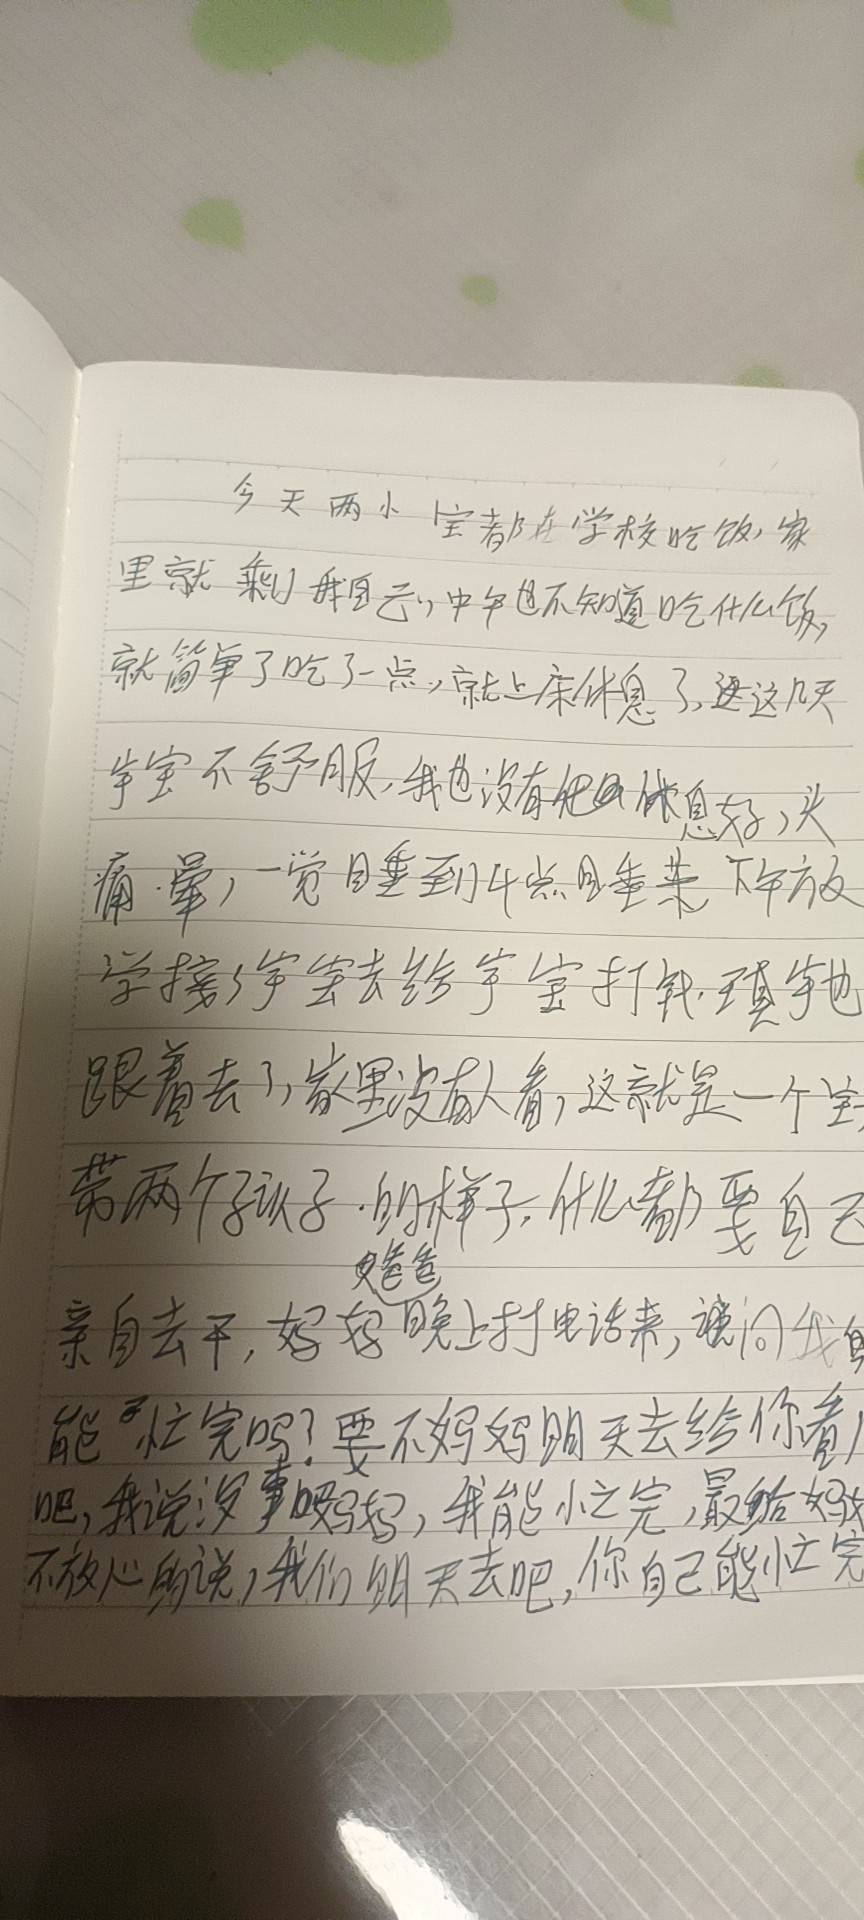 今天两小宝都在学校吃饭,家
里就剩我自己,中午也不知道吃什么饭,
就简单了吃了一点,就上床休息了,这几天
宇宝不舒服,我也没有休息好,头
痛.晕,一觉睡到4点 下午放
学接了宇宝去给宇宝打针.瑱宇也
跟着去了,家里没有人看,这就是一个宝
带两个孩子.的样子.什么都要自己
爸爸
亲自去干,妈妈晚上打电话来,问我自
能忙完吗?要不妈妈明天去给你看
吧,我说没事妈妈,我能忙完,最妈妈
不放心的说,我们明天去吧,你自己能忙完